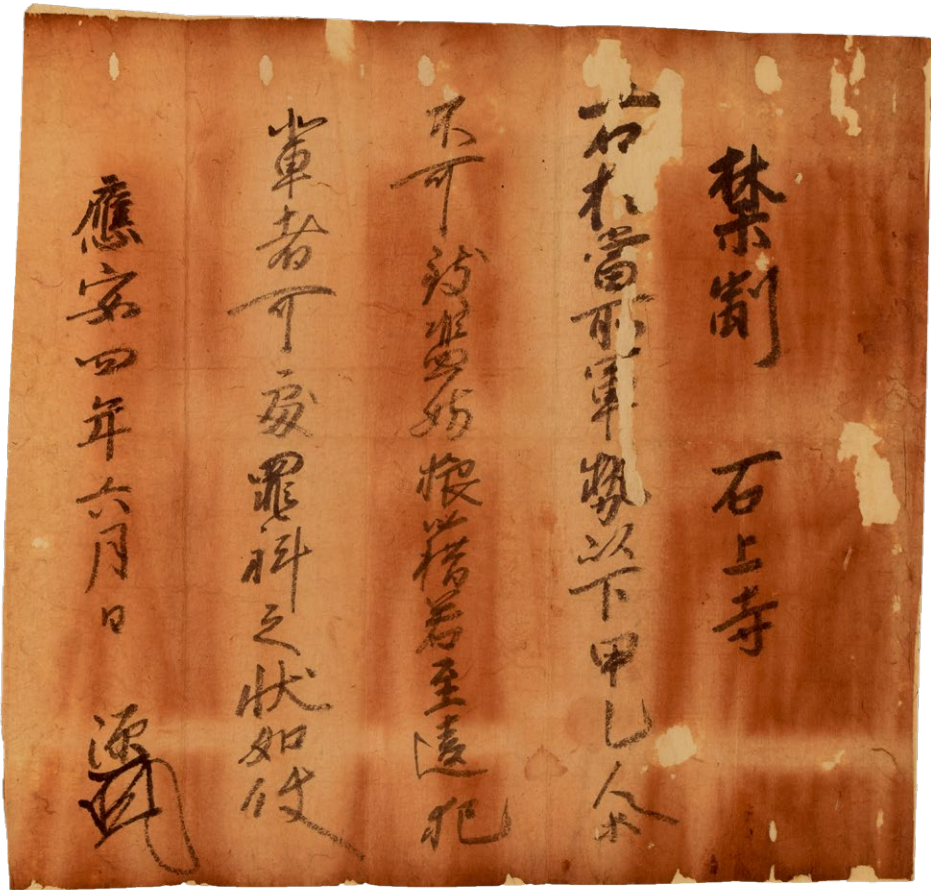 禁制 石上寺
右於當所軍勢以下甲乙人等
不可致濫妨狼藉若至違犯
輩者可處罪科之状如件
應安四年六月日 源